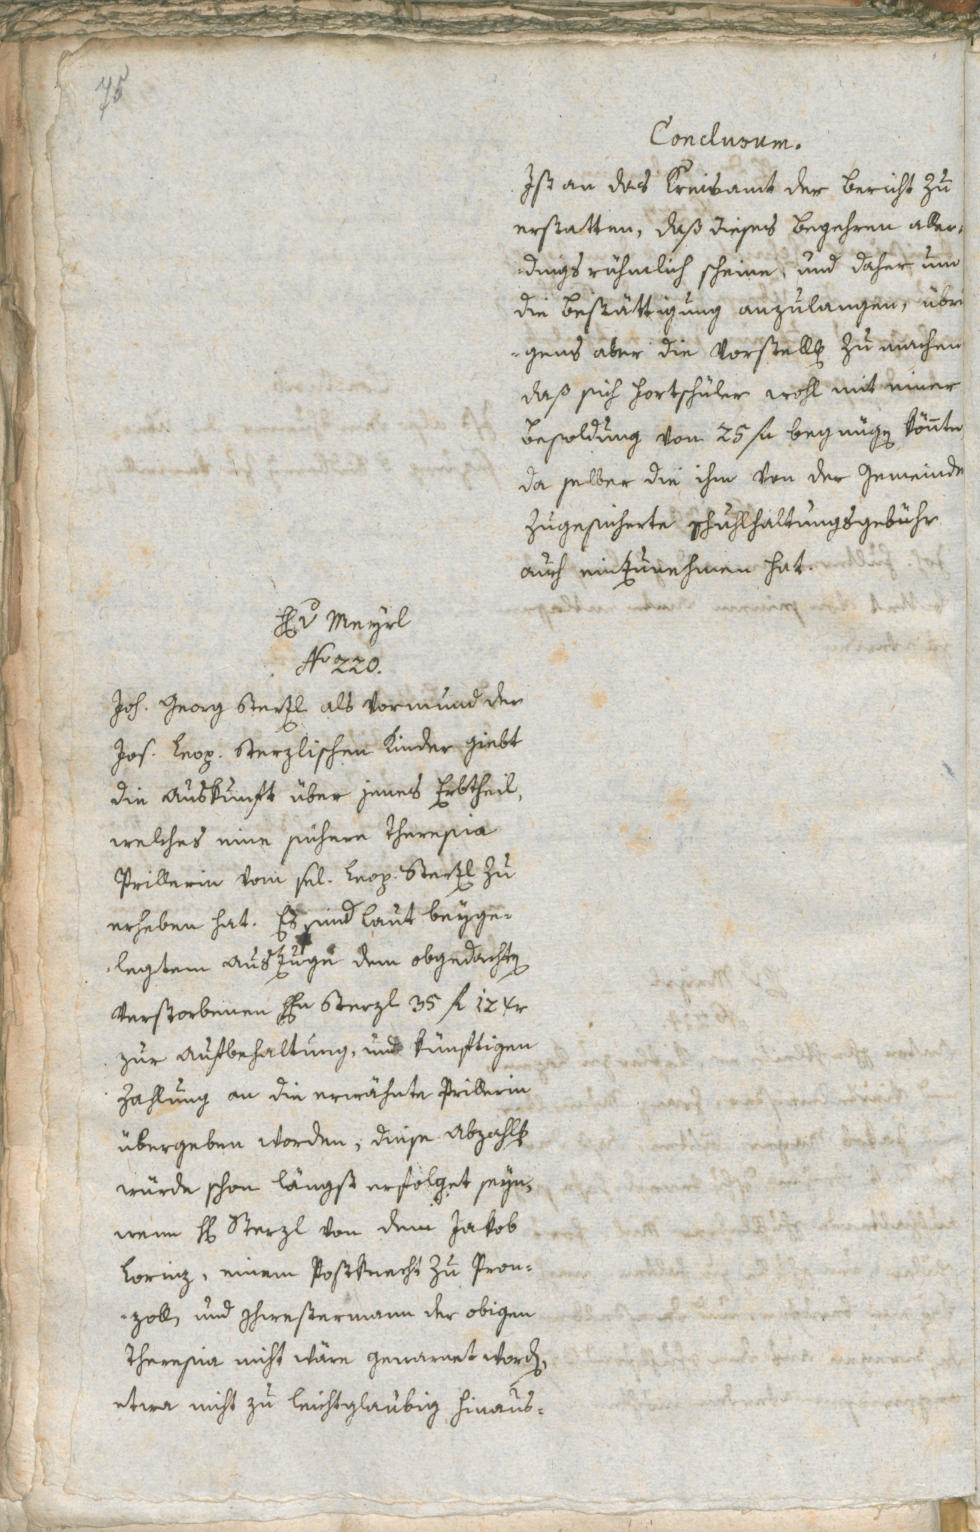 75
Conclusum.
Ist an das Kreisamt der Bericht zu
erstatten, daß dieses Begehren aller-
-dings rühmlich scheine, und daher um
die Bestättigung anzulangen, übri
-gens aber die Vorstellg zu machen
daß sich Hortschüler wohl mit einer
Besoldung von 25 fl begnügen könnte
da selber die ihm von der Gemeinde
zugesicherte Schuhlhaltungsgebühr
auch einzunehmen hat.
H v Meyrl
No 220.
Joh. Georg Sterzl als Vormund der
Jos. Leop. Sterzlischen Kinder giebt
die Auskunft über jenes Erbtheil,
welches eine sichere Theresia
Prillerin vom sel. Leop. Sterzl zu
erheben hat. Es sind laut beyge-
-legtem Auszuge dem obgedachten
verstorbenen Hn Sterzl 35 f 12 xr
zur Aufbehaltung, und künftigen
Zahlung an die erwähnte Prillerin
übergeben worden, diese Abzahlg
würde schon längst erfolget seyn,
wenn H Sterzl von dem Jakob
Lorinz, einem Postknecht zu Pron-
-zoll, und Schwestermann der obigen
Theresia nicht wäre gewarnet worden,
etwa nicht zu leichtglaubig hinaus-